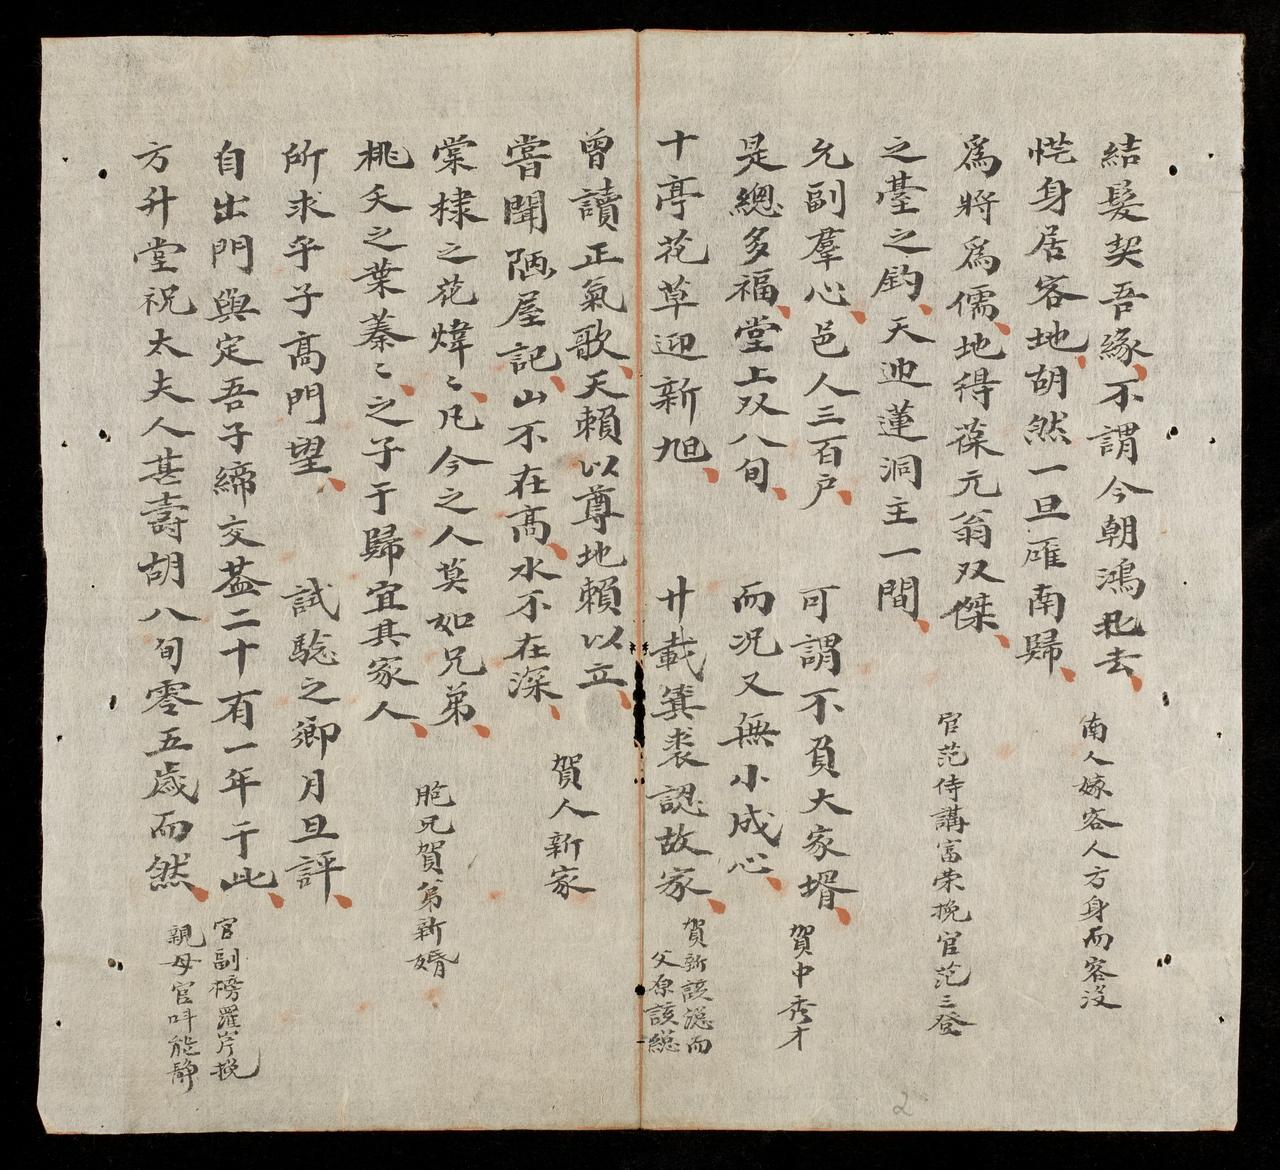 結髮契吾緣不謂今朝鴻北去
恍身居客地胡然一旦雁南歸
南人嫁客人方身而客沒
爲將爲儒地得葆元翁双傑
之臺之釣天迎蓮洞主一間
官范侍講富荣挽官范三登
允副羣心邑人三百户
可謂不負大家壻
是總多福堂上双八旬
而况又無小成心
賀中秀才
十亭花草迎新旭
廿載箕裘認故家
賀新該總而
父原該總
曾讀正氣歌天賴以尊地賴以立
嘗聞陋屋記山不在高水不在深
賀人新家
棠棣之花煒〻凡今之人莫如兄弟
桃夭之葉蓁〻之子于歸宜其家人
胞兄賀弟新婚
所求乎子高門望
試騐之鄉月旦評
自出門與定吾子締交葢二十有一年于此
方升堂祝太夫人甚壽胡八旬零五歲而然
官副榜羅岸挽
親母官呌能靜
2